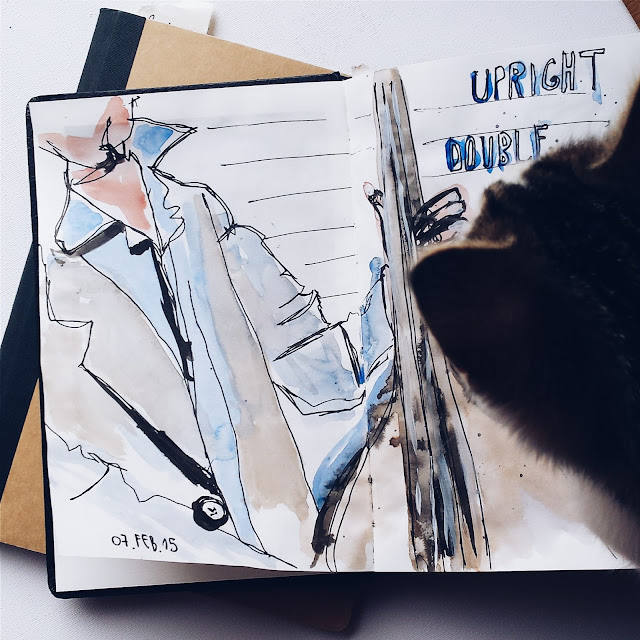 UPRIGHT
DOUBLE
07.FEB.15